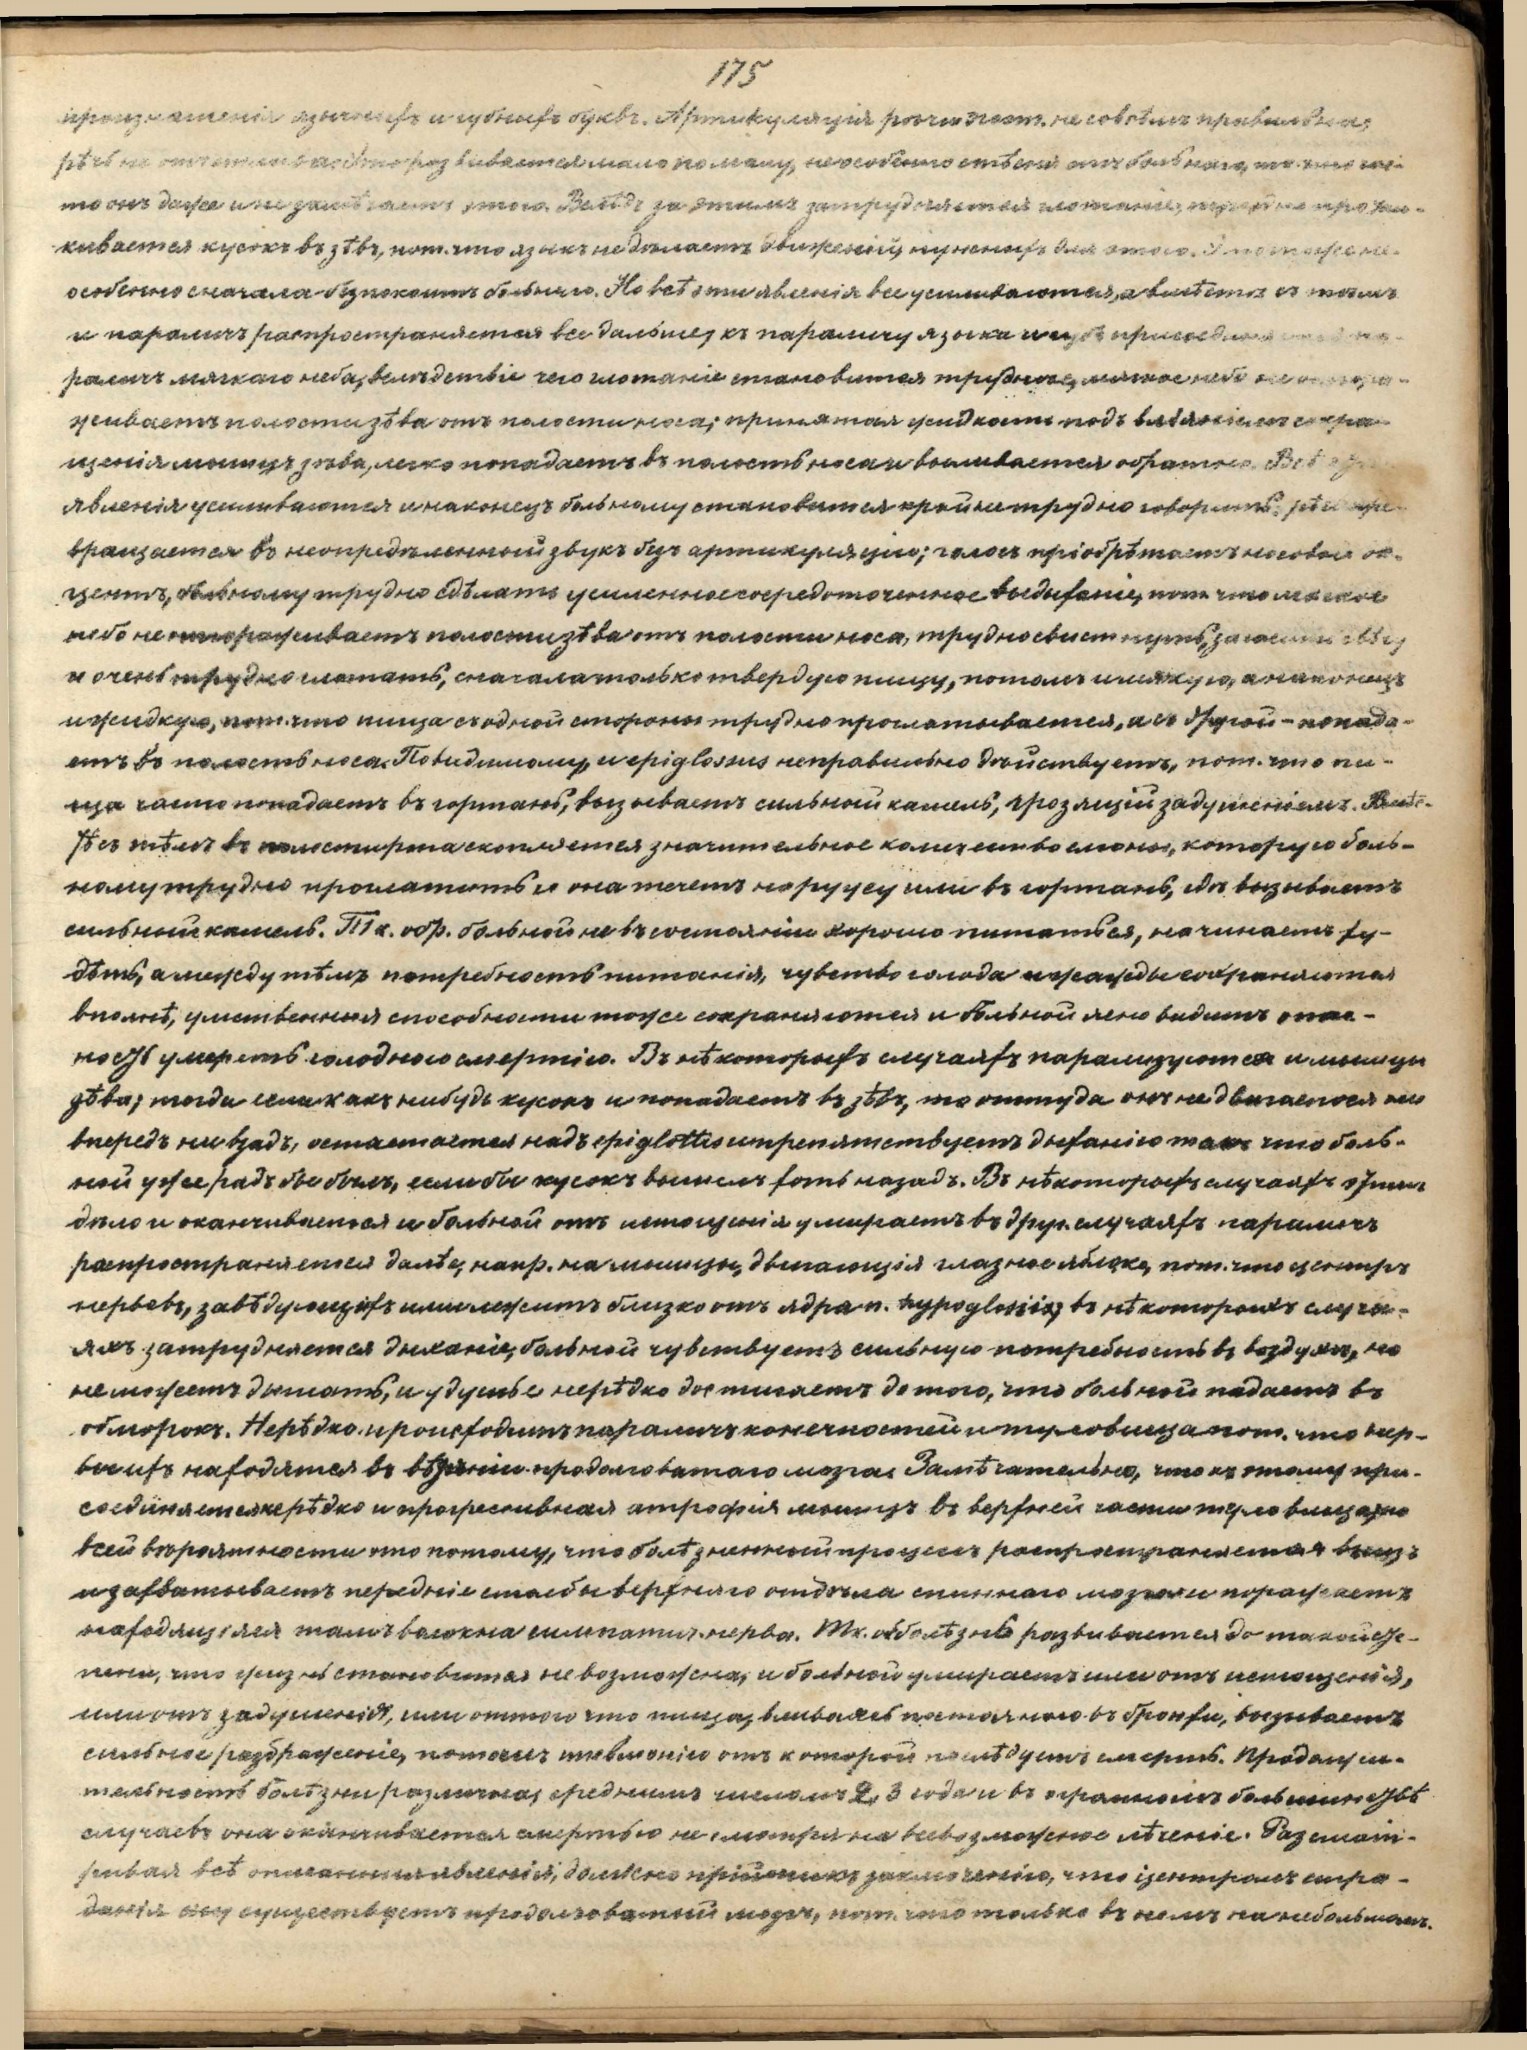 175
произношенія язычныхъ и губныхъ буквъ. Артикуляція рѣчи поэт. не совсѣмъ правильная,
рѣчь не отчетлива. Это развивается мало по малу, не особенно стѣсняетъ больного, такъ что час-
то онъ даже и не замѣчаетъ этого. Вслѣдъ за этимъ затрудняется глотаніе, трудно протал-
кивается кусокъ въ зѣвъ, пот. что языкъ не дѣлаетъ движеній, нужныхъ для этого. Это тоже не-
особенно сначала безпокоитъ больнаго. Но всѣ эти явленія все усиливаются, а вмѣстѣ съ тѣмъ
и параличъ распространяется все дальше, къ параличу языка и губъ присоединяется па-
раличъ мягкаго неба, вслѣдствіе чего глотаніе становится труднѣе, мягкое небо не отгора-
живаетъ полости зѣва отъ полости носа; принятая жидкость подъ вліяніемъ сокра-
щенія мышцъ зѣва, легко попадаетъ въ полость носа и выливается обратно. Всѣ эти
явленія усиливаются и наконецъ больному становится крайне трудно говорить, рѣчь пре-
вращается въ неопредѣленный звукъ безъ артикуляціи; голосъ пріобрѣтаетъ носовой ак-
центъ, больному трудно сдѣлать усиленное сосредоточенное выдыханіе, пот. что мягкое
небо не отгораживаетъ полости зѣва отъ полости носа, трудно свистнуть, загасить свѣчу
и очень трудно глотать, сначала только твердую пищу, потомъ и мягкую, а наконецъ
и жидкую, пот. что пища съ одной стороны трудно проглатывается, а съ другой – попада-
етъ въ полость носа. Повидимому, и epiglossus неправильно дѣйствуетъ, пот. что пи-
ща часто попадаетъ въ гортань, вызываетъ сильный кашель, грозящій задушеніемъ. Вмѣс-
тѣ съ тѣмъ въ полости рта скопляется значительное количество слюны, которую боль-
ному трудно проглатить и она течетъ наружу или въ гортань, гдѣ вызываетъ
сильный кашель. Так. обр. больной не въ состояніи хорошо питаться, начинаетъ ху-
дѣть, а между тѣмъ потребность питанія, чувство голода и жажды сохраняются
вполнѣ, умственныя способности тоже сохраняются и больной ясно видитъ опас-
ность умереть голодною смертію. Въ нѣкоторыхъ случаяхъ парализуются и мышцы
зѣва; тогда если какъ нибудь кусокъ и попадаетъ въ зѣвъ, то оттуда онъ не двигается ни
впередъ ни взадъ, остается надъ epiglottis и препятствуетъ дыханію такъ что боль-
ной уже радъ бы былъ, если бы кусокъ вышелъ хоть назадъ. Въ нѣкоторыхъ случаяхъ этимъ
дѣло и оканчивается и больной отъ истощенія умираетъ въ друг. случаяхъ параличъ
распространяется далѣе, напр. на мышцы, двигающія глазное яблоко, пот. что центръ
нервовъ, завѣдующихъ ими лежитъ близко отъ ядра n. hypoglossi; въ нѣкоторыхъ случа-
яхъ затрудняется дыханіе, больной чувствуетъ сильную потребность въ воздухѣ, но
не можетъ дышать, и удушье нерѣдко достигаетъ до того, что больной падаетъ въ
обморокъ. Нерѣдко происходитъ параличъ конечностей и туловища пот. что нер-
вы ихъ находятся въ продолговатаго мозга. Замѣчательно, что къ этому при-
соединяется нерѣдко и прогресивная атрофія мышцъ въ верхней части туловища, по
всей вѣроятности это потому, что болѣзненный процессъ распространяется внизъ
и захватываетъ передніе столбы верхняго отдѣла спиннаго мозга и поражаетъ
находящіяся тамъ волокна симпатич. нерва. Тк. об. болѣзнь развивается до такой сте-
пени, что жизнь становится не возможна, и больной умираетъ или отъ истощенія,
или отъ задушенія, или оттого что пища, вливаясь постоянно въ бронхи, вызываетъ
сильное раздраженіе, потомъ пневмонію отъ которой послѣдуетъ смерть. Продолжи-
тельность болѣзни различна, среднимъ числомъ 2, 3 года и въ огромномъ большинствѣ
случаевъ она оканчивается смертью не смотря на всевозможное лѣченіе. Разсмат-
ривая всѣ описанныя явленія, должно прійти къ заключенію, что центромъ стра-
данія существуетъ продолговатый мозгъ, пот. что только въ немъ на небольшом.